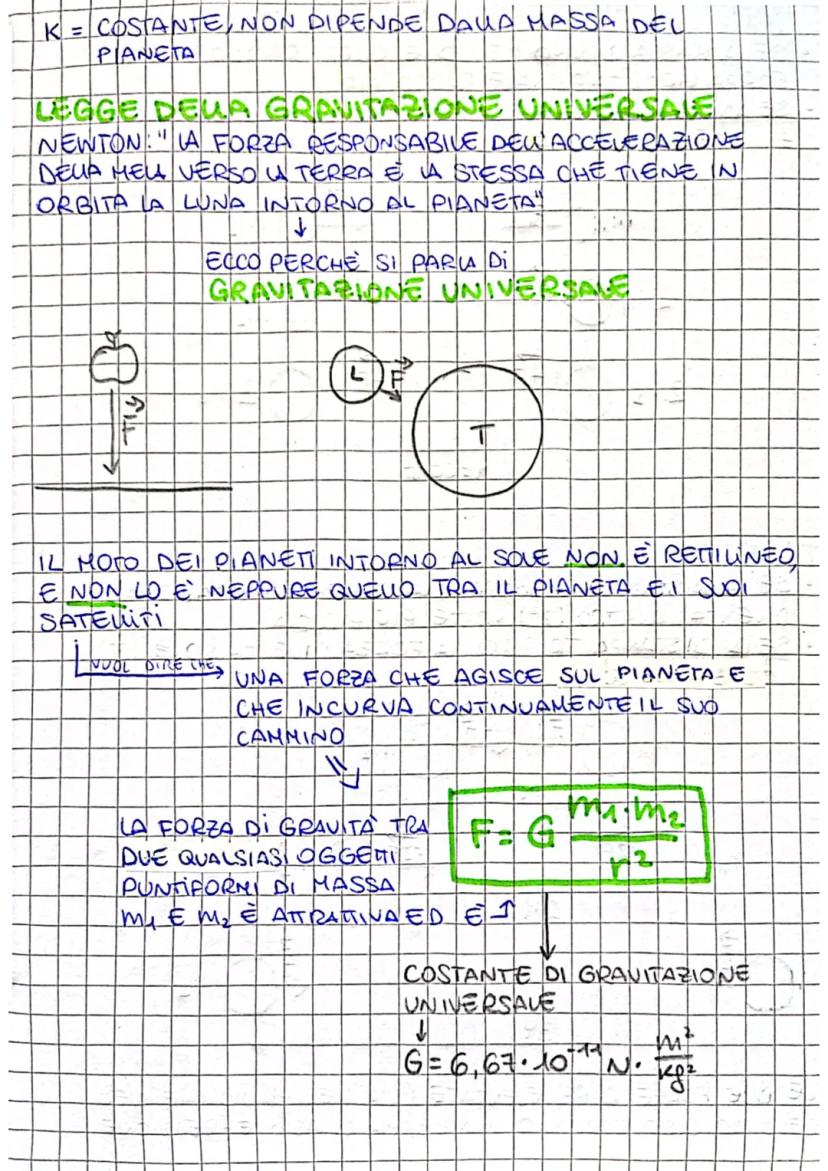 K = COSTANTE, NON DIPENDE DALLA MASSA DEL
PIANETA
LEGGE DELLA GRAVITAZIONE UNIVERSALE
NEWTON: "LA FORZA RESPONSABILE DELL'ACCELERAZIONE
DELLA MELA VERSO LA TERRA È LA STESSA CHE TIENE IN
ORBITA LA LUNA INTORNO AL PIANETA"
↓
ECCO PERCHÈ SI PARLA DI
GRAVITAZIONE UNIVERSALE
F
L F
T
IL MOTO DEI PIANETI INTORNO AL SOLE NON È RETTILINEO,
E NON LO È NEPPURE QUELLO TRA IL PIANETA E I SUOI
SATELLITI
VUOL DIRE CHE
UNA FORZA CHE AGISCE SUL PIANETA E
CHE INCURVA CONTINUAMENTE IL SUO
CAMMINO
LA FORZA DI GRAVITÀ TRA
DUE QUALSIASI OGGETTI
PUNTIFORMI DI MASSA
m₁ E m₂ È ATTRATTIVA ED È
F = G m₁·m₂ / r²
COSTANTE DI GRAVITAZIONE
UNIVERSALE
↓
G = 6,67·10⁻¹¹ N· m²/kg²